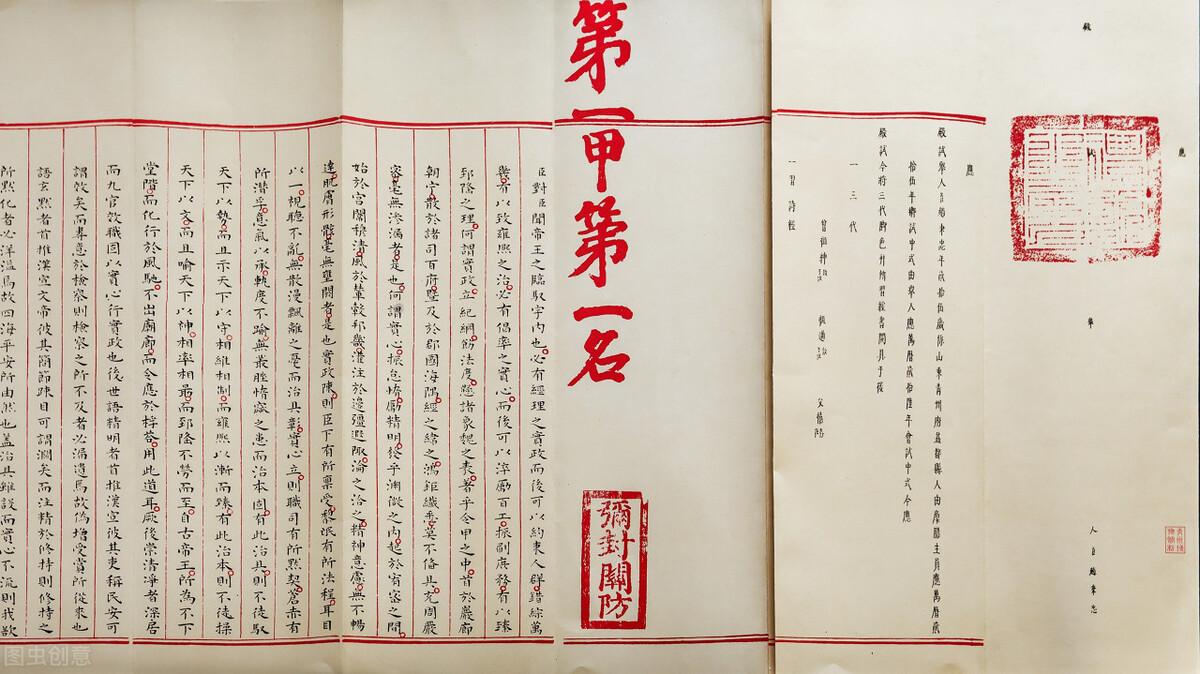 殿
應
舉
人臣趙秉忠
應
殿試舉人臣趙秉忠年貳拾伍歲係山東青州府益都縣人由廩膳生員應萬曆貳
拾伍年鄉試中式由舉人應萬曆貳拾陸年會試中式今應
殿試今將三代腳色并所習經書開具于後
一三代
曾祖 祖 父
一習詩經
第一甲第一名
彌封關防
臣對臣聞帝王之臨馭宇內也必有經理之實政而後可以約束人群錯綜萬
幾有以致雍熙之治必有倡率之實心而後可以淬勵百工振刷庶務有以臻
郅隆之理何謂實政立紀綱飭法度懸諸象魏之表著乎令甲之中首於巖廊
朝宁散於諸司百府暨及於郡國海隅經之緯之鴻鉅纖悉莫不備具充周嚴
密毫無滲漏者是也何謂實心振怠惰勵精明發乎淵微之內起於宥密之間
始於宮闈穆清風於輦轂邦畿灌注於邊疆遐陬淪之洽之精神意慮無不暢
達肌膚形骸毫無壅閼者是也實政陳則臣下有所稟受黎氓有所法程耳目
以一視聽不亂無散漫飄離之憂而治具彰實心立則職司有所默契蒼赤有
所潛孚意氣以承軌度不踰無叢脞惰窳之患而治本固有此治具則不徒馭
天下以勢而且示天下以守相維相制而雍熙以漸而臻有此治本則不徒操
天下以文而且喻天下以神相率相最而郅隆不勞而至自古帝王所為不下
堂階而化行於風馳不出廟廊而令應於桴荅用此道耳厥後崇清淨者深居
而九官效職固以實心行實政也後世語精明者首推漢宣彼其吏稱民安可
謂效矣而專意於檢察則檢察之所不及者必漏遺焉故偽增受賞所從來也
語玄默者首推漢宣文帝彼其簡節疎目可謂濶矣而注精於修持則修持之
所默化者必洋溢焉故四海平安所由然也蓋治具雖設而實心不流則我欲
图虫创意